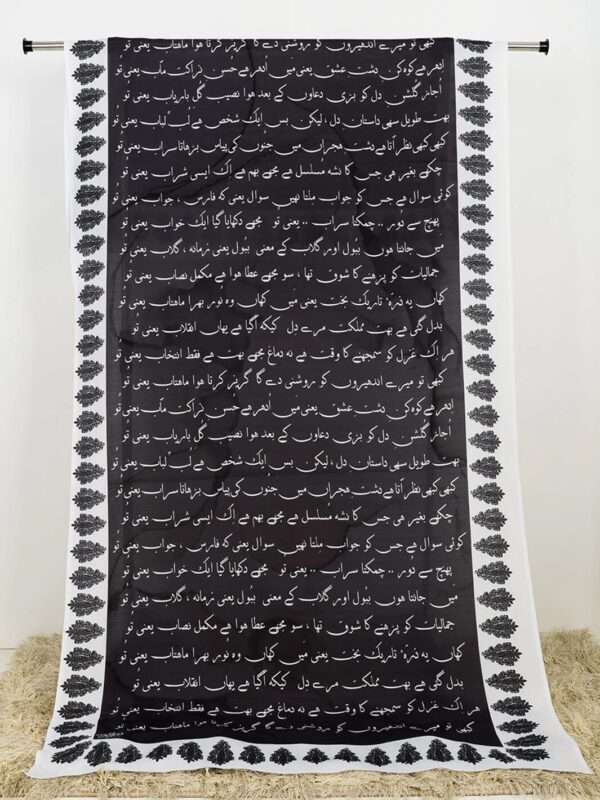 کبھی تو میرے اندھیروں کو روشنی دے گا گریز کرتا ہوا ماہتاب یعنی تُو
اِدھر ہے کوہ کن دشتِ عشق یعنی میں اُدھر ہے حُسن نزاکت مآب یعنی تُو
اُجاڑ گلشنِ دل کو بڑی دعاوں کے بعد ہوا نصیب گُل باریاب یعنی تُو
بہت طویل سہی داستانِ دل ، لیکن بس ایک شخص ہے لُبِ لباب یعنی تُو
کبھی کبھی نظر آتا ہے دشتِ ہجراں میں جنوں کی پیاس بڑھاتا سراب یعنی تُو
چکھے بغیر ہی جس کا نشہ مُسلسل ہے مجھے بہم ہے اِک ایسی شراب یعنی تُو
کوئی سوال ہے جس کو جواب مِلتا نہیں سوال یعنی کہ فارس ، جواب یعنی تُو
پہنچ سے دُور .. چمکتا سراب .. یعنی تُو مجھے دکھایا گیا ایک خواب یعنی تُو
میں جانتا ہوں ببُول اور گلاب کے معنی ببُول یعنی زمانہ ، گلاب یعنی تُو
جمالیات کو پڑھنے کا شوق تھا ، سو مجھے عطا ہوا ہے مکمل نصاب یعنی تُو
کہاں یہ ذرّہٗ تاریک بخت یعنی میں کہاں وہ نور بھرا ماہتاب یعنی تُو
بدل گئی ہے بہت مملکت مرے دِل کیکہ آگیا ہے یہاں انقلاب یعنی تُو
ہر اِک غزل کو سمجھنے کا وقت ہے نہ دماغ مجھے بہت ہے فقط انتخاب یعنی تُو
کبھی تو میرے اندھیروں کو روشنی دے گا گریز کرتا ہوا ماہتاب یعنی تُو
اِدھر ہے کوہ کن دشتِ عشق یعنی میں اُدھر ہے حُسن نزاکت مآب یعنی تُو
اُجاڑ گلشنِ دل کو بڑی دعاوں کے بعد ہوا نصیب گُل باریاب یعنی تُو
بہت طویل سہی داستانِ دل ، لیکن بس ایک شخص ہے لُبِ لباب یعنی تُو
کبھی کبھی نظر آتا ہے دشتِ ہجراں میں جنوں کی پیاس بڑھاتا سراب یعنی تُو
چکھے بغیر ہی جس کا نشہ مُسلسل ہے مجھے بہم ہے اِک ایسی شراب یعنی تُو
کوئی سوال ہے جس کو جواب مِلتا نہیں سوال یعنی کہ فارس ، جواب یعنی تُو
پہنچ سے دُور .. چمکتا سراب .. یعنی تُو مجھے دکھایا گیا ایک خواب یعنی تُو
میں جانتا ہوں ببُول اور گلاب کے معنی ببُول یعنی زمانہ ، گلاب یعنی تُو
جمالیات کو پڑھنے کا شوق تھا ، سو مجھے عطا ہوا ہے مکمل نصاب یعنی تُو
کہاں یہ ذرّہٗ تاریک بخت یعنی میں کہاں وہ نور بھرا ماہتاب یعنی تُو
بدل گئی ہے بہت مملکت مرے دِل کیکہ آگیا ہے یہاں انقلاب یعنی تُو
ہر اِک غزل کو سمجھنے کا وقت ہے نہ دماغ مجھے بہت ہے فقط انتخاب یعنی تُو
کبھی تو میرے اندھیروں کو روشنی دے گا گریز کرتا ہوا ماہتاب یعنی تُو